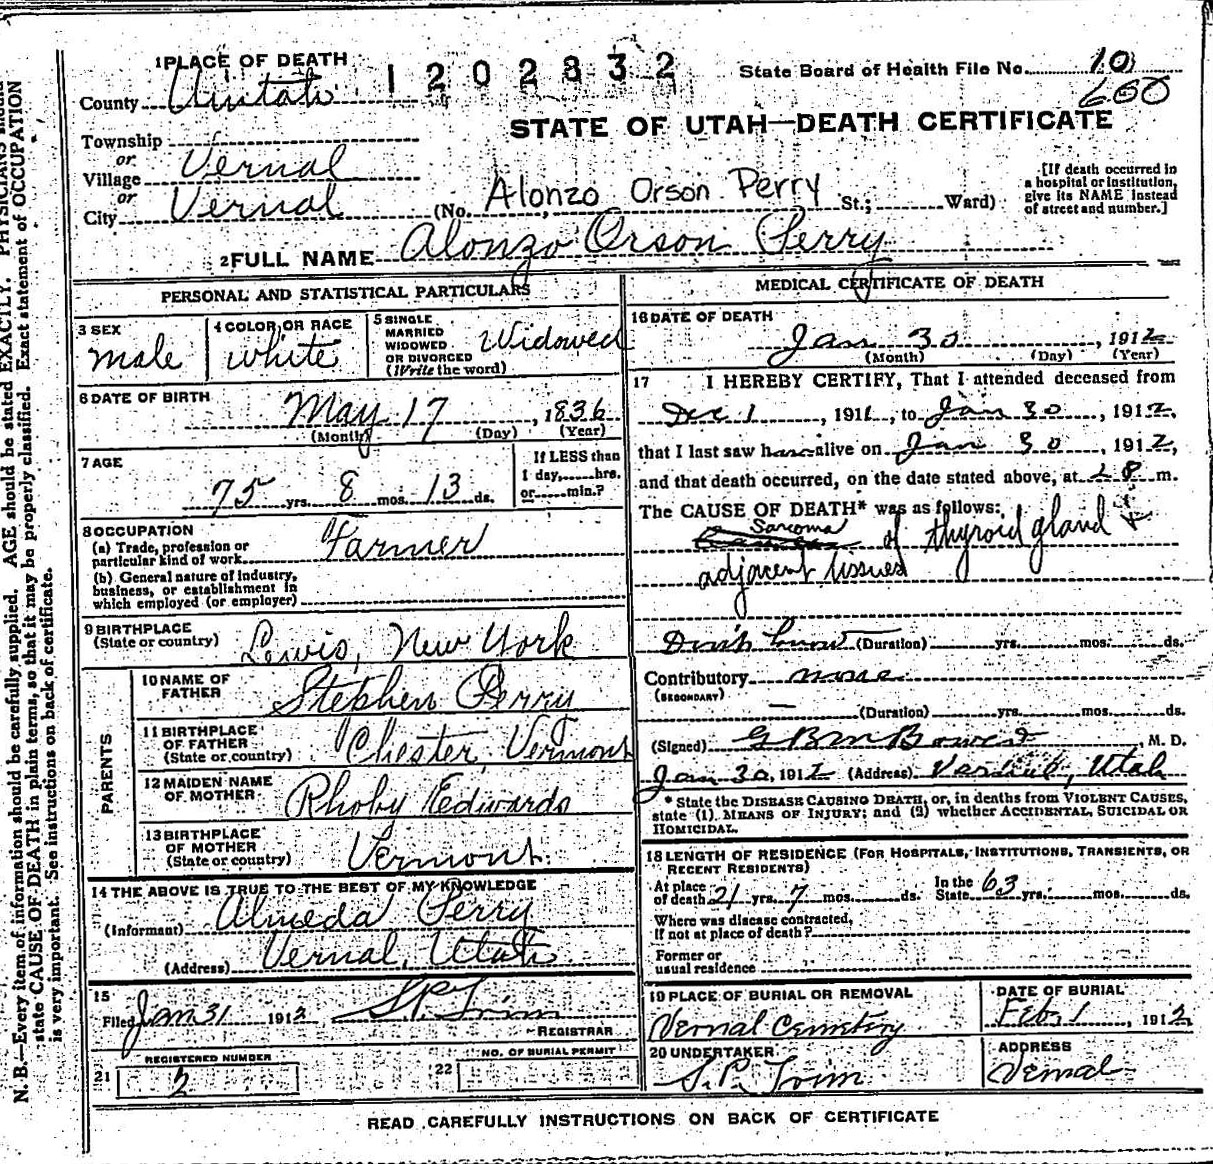 1 PLACE OF DEATH
1202832
State Board of Health File No. 10
660
County Uintah
STATE OF UTAH—DEATH CERTIFICATE
Township
or
Village Vernal
or
City Vernal (No. Alonzo Orson Perry St.; Ward)
[If death occurred in a hospital or institution, give its NAME instead of street and number.]
2 FULL NAME Alonzo Orson Perry
PERSONAL AND STATISTICAL PARTICULARS
3 SEX male
4 COLOR OR RACE white
5 SINGLE MARRIED WIDOWED OR DIVORCED (Write the word) Widowed
6 DATE OF BIRTH May 17, 1836
(Month) (Day) (Year)
7 AGE 75 yrs. 8 mos. 13 ds.
If LESS than 1 day, hrs. or min.?
8 OCCUPATION
(a) Trade, profession or particular kind of work Farmer
(b) General nature of industry, business, or establishment in which employed (or employer)
9 BIRTHPLACE (State or country) Lewis, New York
PARENTS
10 NAME OF FATHER Stephen Perry
11 BIRTHPLACE OF FATHER (State or country) Chester, Vermont
12 MAIDEN NAME OF MOTHER Rhoby Edwards
13 BIRTHPLACE OF MOTHER (State or country) Vermont.
14 THE ABOVE IS TRUE TO THE BEST OF MY KNOWLEDGE
(Informant) Almeda Perry
(Address) Vernal, Utah
15 Filed Jan 31 1912 S.P. Trim
REGISTRAR
REGISTERED NUMBER
21 2
NO. OF BURIAL PERMIT
22
MEDICAL CERTIFICATE OF DEATH
16 DATE OF DEATH
Jan 30, 1912
(Month) (Day) (Year)
17 I HEREBY CERTIFY, That I attended deceased from
Dec 1, 1911, to Jan 30, 1912,
that I last saw h alive on Jan 30, 1912,
and that death occurred, on the date stated above, at 8 m.
The CAUSE OF DEATH* was as follows:
Sarcoma of thyroid gland +
adjacent tissues
Don't know (Duration) yrs. mos. ds.
Contributory none
(SECONDARY)
— (Duration) yrs. mos. ds.
(Signed) , M. D.
Jan 30, 1912 (Address) Utah
* State the DISEASE CAUSING DEATH, or, in deaths from VIOLENT CAUSES, state (1) MEANS OF INJURY; and (2) whether ACCIDENTAL, SUICIDAL OR HOMICIDAL.
18 LENGTH OF RESIDENCE (FOR HOSPITALS, INSTITUTIONS, TRANSIENTS, OR RECENT RESIDENTS)
At place of death 21 yrs. 7 mos. ds. In the State 63 yrs. mos. ds.
Where was disease contracted, if not at place of death?
Former or usual residence
19 PLACE OF BURIAL OR REMOVAL
Vernal Cemetery
DATE OF BURIAL
Feb, 1, 1912
20 UNDERTAKER
S. P. Trim
ADDRESS
Vernal
READ CAREFULLY INSTRUCTIONS ON BACK OF CERTIFICATE
N. B.—Every item of information should be carefully supplied. AGE should be stated EXACTLY. PHYSICIANS should
state CAUSE OF DEATH in plain terms, so that it may be properly classified. Exact statement of OCCUPATION
is very important. See instructions on back of certificate.